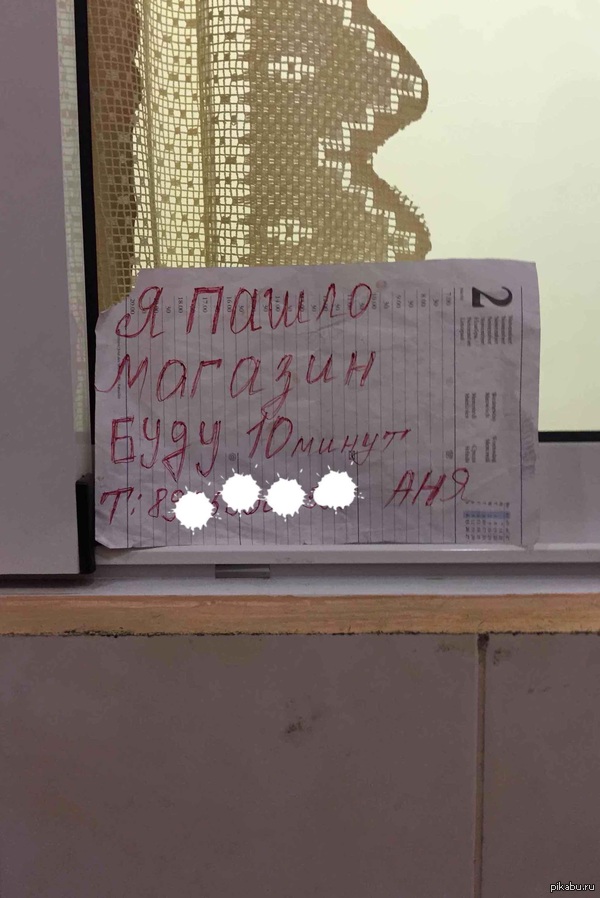 Я ПАШЛО
МАГАЗИН
БУДУ 10 минут
Т: 89
АНЯ
2
pikabu.ru